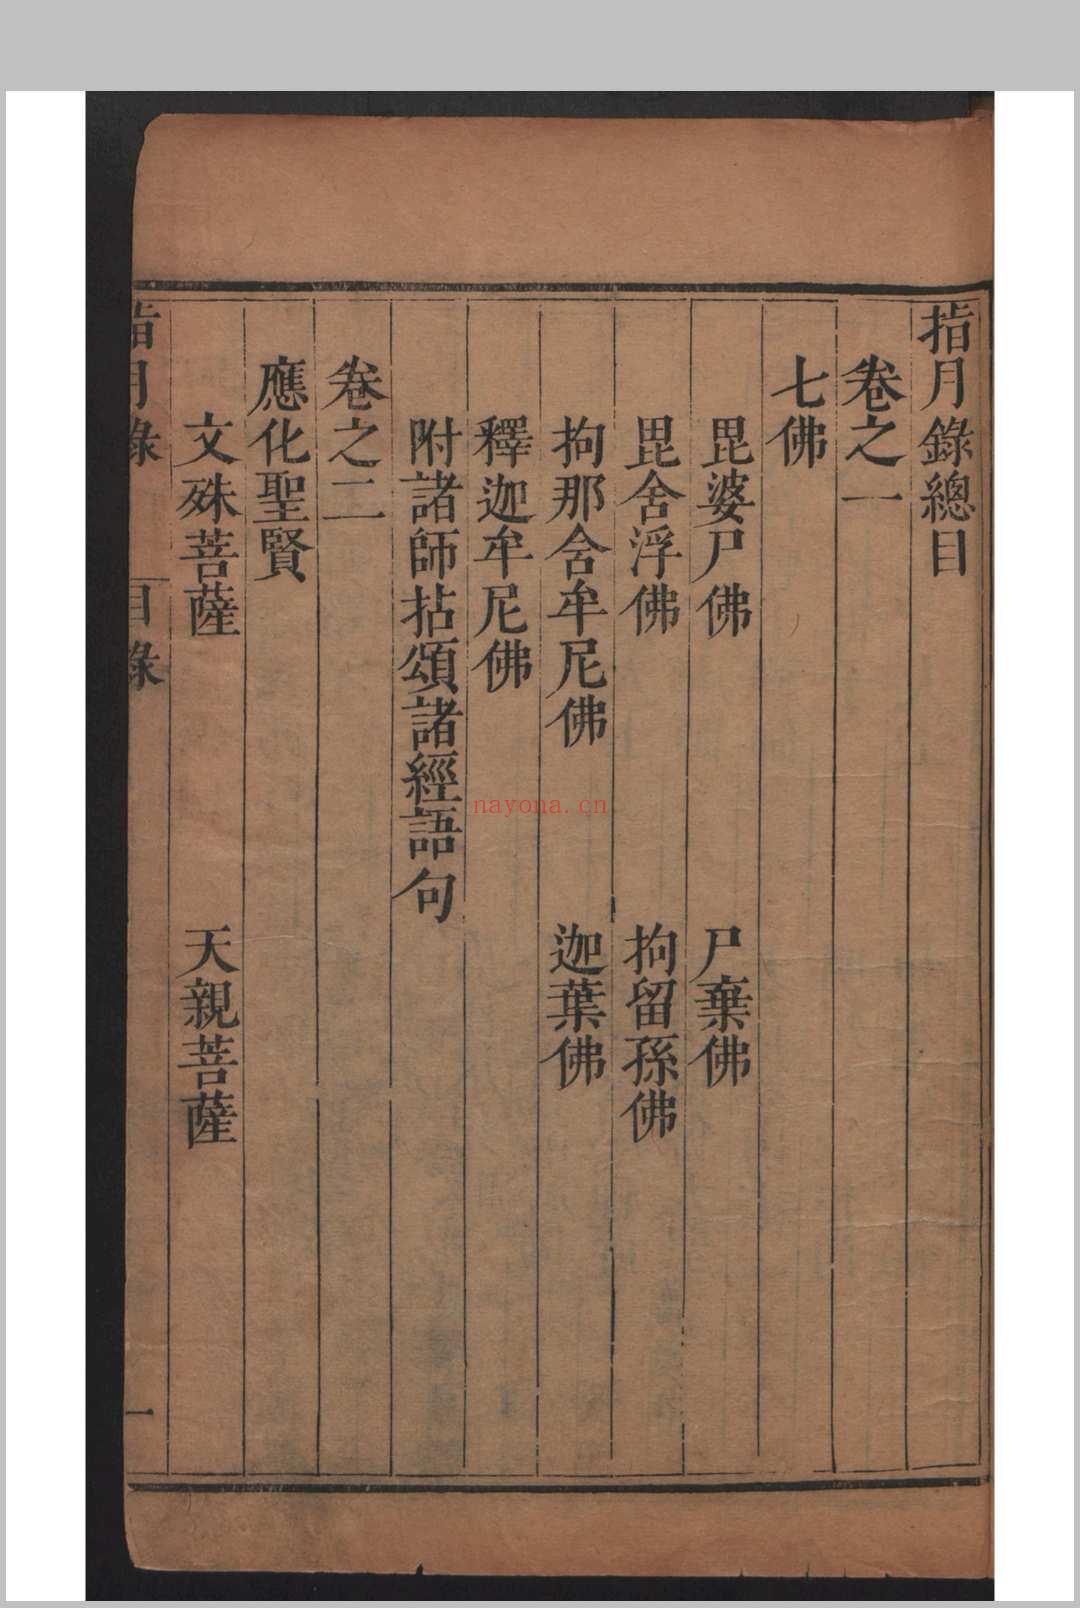 指月錄總目
卷之一
七佛
毘婆尸佛 尸棄佛
毘舍浮佛 拘留孫佛
拘那舍牟尼佛 迦葉佛
釋迦牟尼佛
附諸師拈頌諸經語句
卷之二
應化聖賢
文殊菩薩 天親菩薩
指月錄 目錄 一
nayona.cn